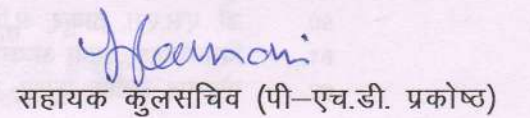 सहायक कुलसचिव (पी–एच.डी. प्रकोष्ठ)